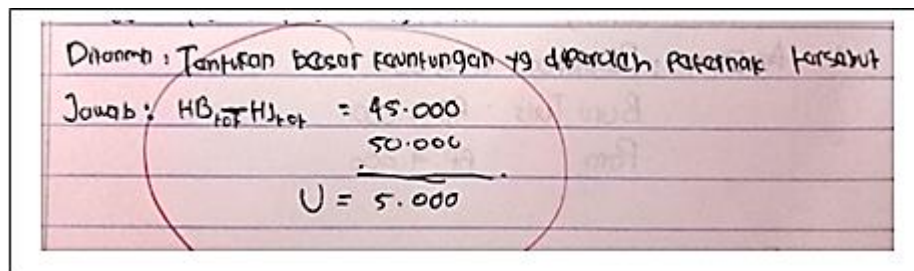 Ditanya : Tentukan besar keuntungan yg diperoleh peternak tersebut
Jawab : HBtot - HJtot = 45.000
50.000
U = 5.000